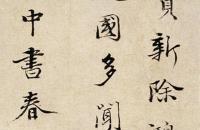 新除
國多聞
中書春